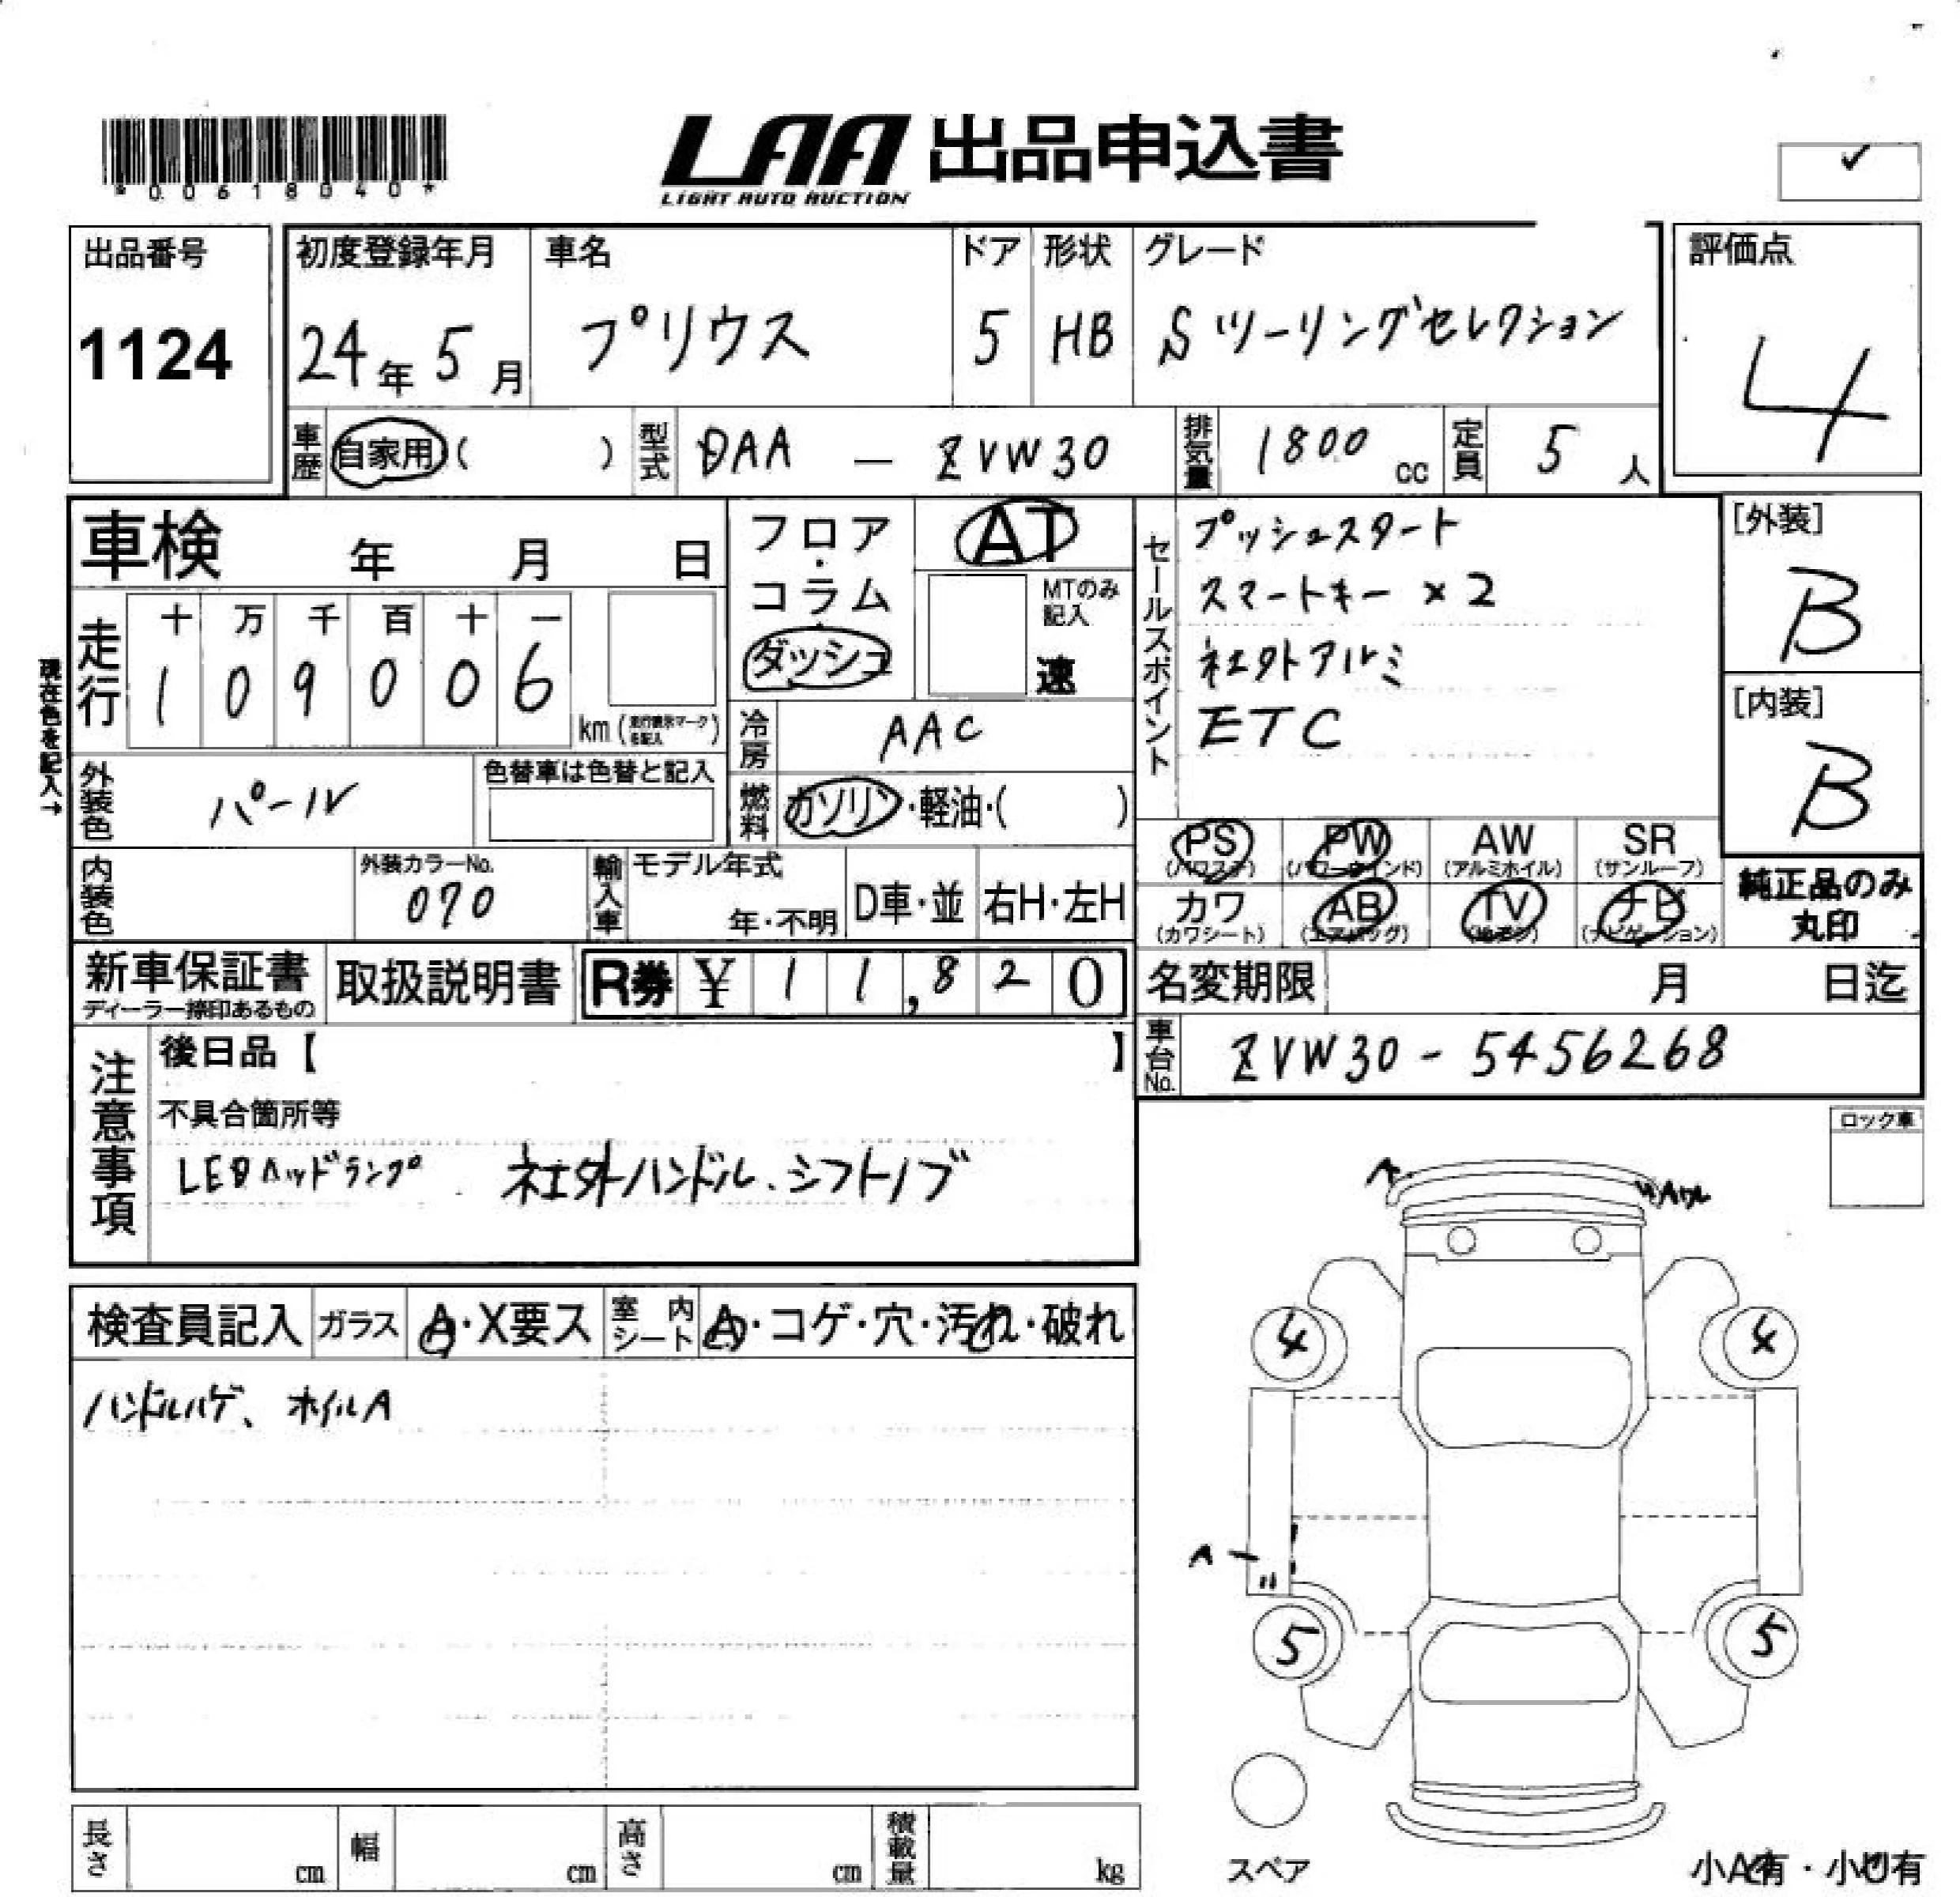 *00618040*
LAA 出品申込書
LIGHT AUTO AUCTION
✓
出品番号
1124
初度登録年月
24年 5月
車名
プリウス
ドア
5
形状
HB
グレード
Sツーリングセレクション
評価点
4
車歴 自家用( )
型式 DAA - ZVW30
排気量 1800 cc
定員 5 人
車検 年 月 日
フロア・
コラム・
ダッシュ
AT
MTのみ
記入
速
セールスポイント
プッシュスタート
スマートキー ×2
社外アルミ
ETC
[外装]
B
[内装]
B
現在色を記入→
走行
十 万 千 百 十 一
1 0 9 0 0 6
km (走行表示マークを記入)
冷房 AAC
外装色 パール
色替車は色替と記入
燃料 ガソリン・軽油・( )
PS (パワステ)
PW (パワーウインド)
AW (アルミホイル)
SR (サンルーフ)
カワ (カワシート)
AB (エアバッグ)
TV (テレビ)
ナビ (ナビゲーション)
純正品のみ
丸印
内装色
外装カラーNo.
070
輸入車
モデル年式
年・不明
D車・並
右H・左H
新車保証書
ディーラー捺印あるもの
取扱説明書
R券 ¥ 11,820
名変期限 月 日迄
車台No. ZVW30-5456268
注意事項
後日品【 】
不具合箇所等
LEDヘッドランプ 社外ハンドル、シフトノブ
ロック車
検査員記入
ガラス A・X要ス
室内シート A・コゲ・穴・汚れ・破れ
ハンドルハゲ、ホイルA
A
4 4
A
5 5
スペア
長さ cm
幅 cm
高さ cm
積載量 kg
小A有・小U有